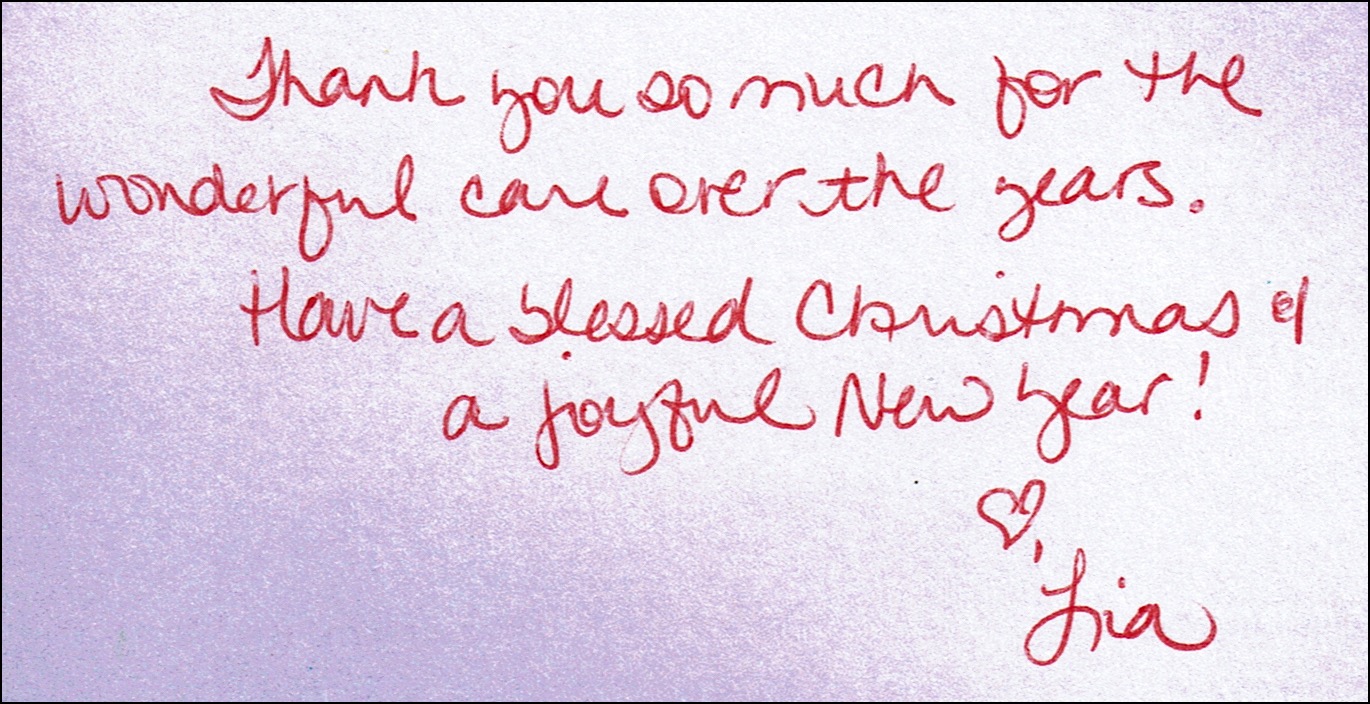 Thank you so much for the
wonderful care over the years.
Have a blessed Christmas &
a joyful New Year!
♡,
Lia